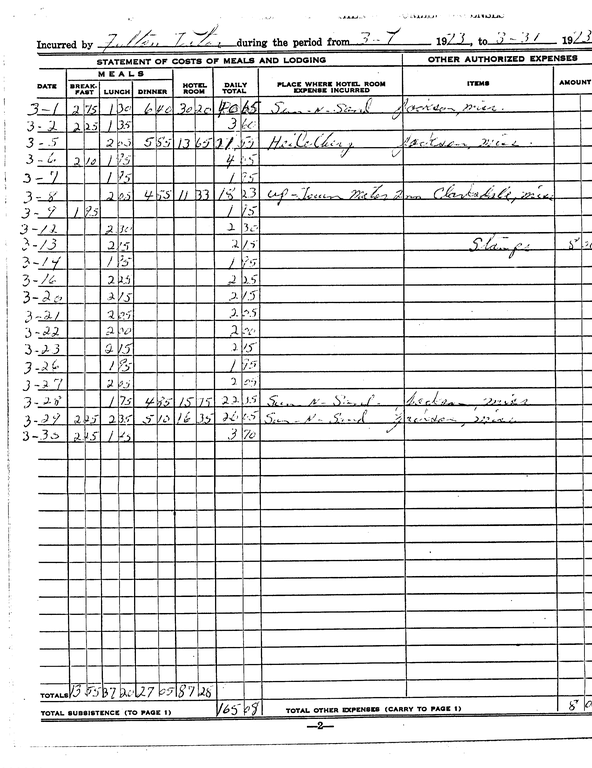 Incurred by Fulton Tutor during the period from 3-1 1973, to 3-31 1973
STATEMENT OF COSTS OF MEALS AND LODGING OTHER AUTHORIZED EXPENSES
MEALS
DATE BREAK-FAST LUNCH DINNER HOTEL ROOM DAILY TOTAL PLACE WHERE HOTEL ROOM EXPENSE INCURRED ITEMS AMOUNT
3-1 2 75 1 30 6 40 30 20 40 65 Sun-N-Sand Jackson, Miss.
3-2 2 25 1 35 3 60
3-5 2 05 5 85 13 65 21 55 Heidelberg Jackson, Miss.
3-6 2 10 1 95 4 05
3-7 1 95 1 95
3-8 2 05 4 85 11 33 18 23 Up-Town Motor Inn Clarksdale, Miss
3-9 1 95 1 95
3-12 2 30 2 30
3-13 2 15 2 15 Stamps 8
3-14 1 95 1 95
3-16 2 25 2 25
3-20 2 15 2 15
3-21 2 05 2 05
3-22 2 00 2 00
3-23 2 15 2 15
3-26 1 95 1 95
3-27 2 05 2 05
3-28 1 75 4 85 15 75 22 35 Sun-N-Sand Jackson, Miss
3-29 2 25 2 35 5 10 16 35 26 05 Sun-N-Sand Jackson, Miss
3-30 2 25 1 45 3 70
TOTALS 13 55 37 20 27 05 87 28
TOTAL SUBSISTENCE (TO PAGE 1) 165 08 TOTAL OTHER EXPENSES (CARRY TO PAGE 1) 8 0
—2—